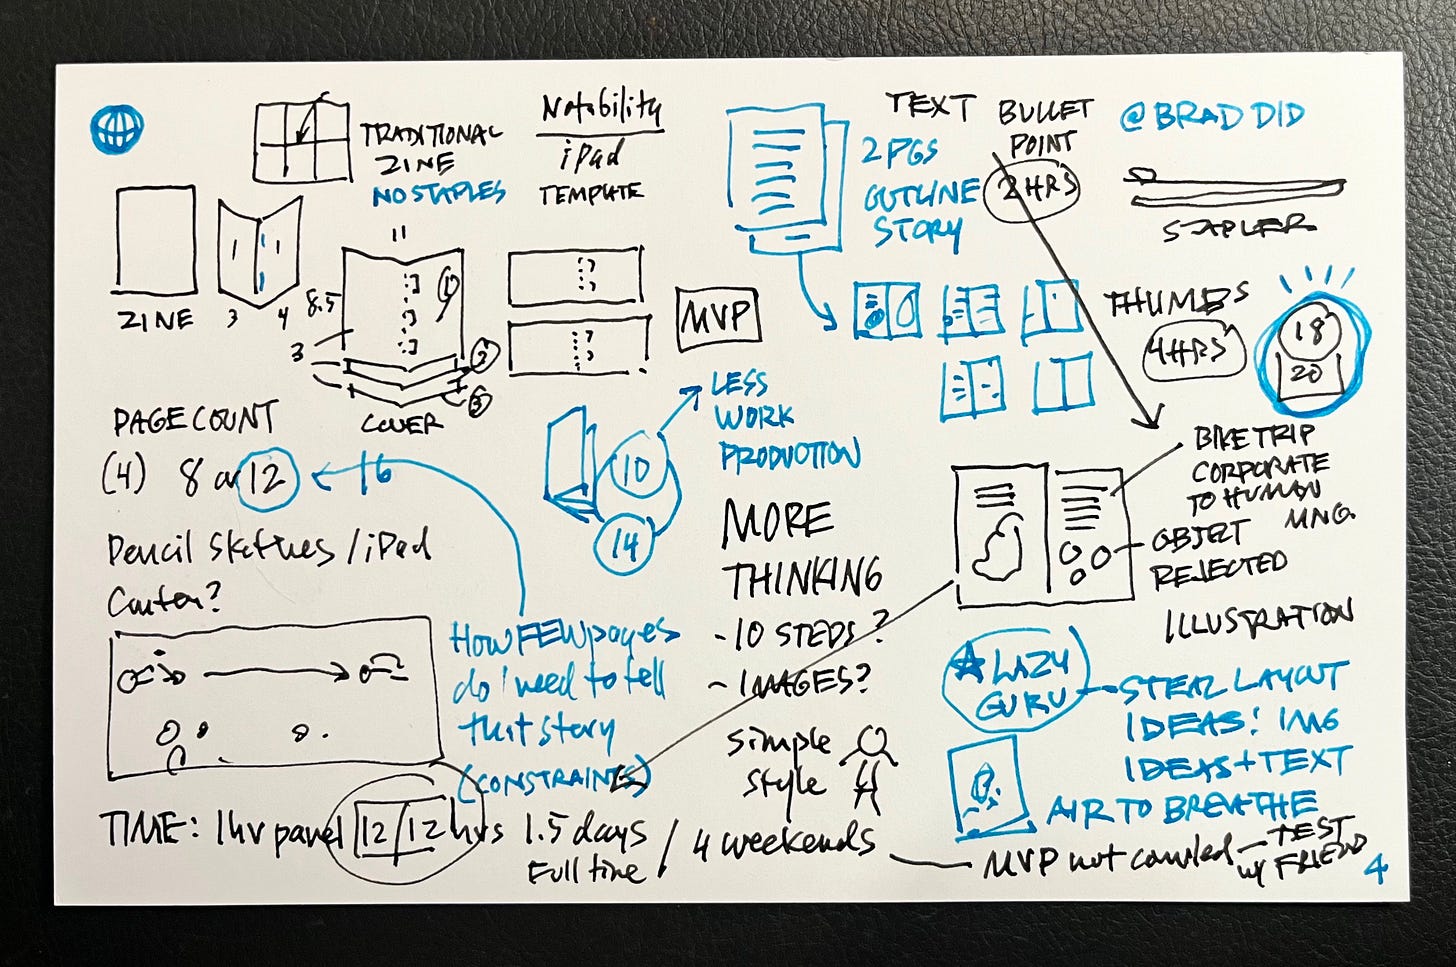 TRADITIONAL
ZINE
NO STAPLES
Notability
iPad
TEMPLATE
ZINE
3
4
11
8.5
3
1
2
3
COVER
MVP
TEXT
2 PGS
OUTLINE
STORY
BULLET
POINT
2 HRS
@BRAD DID
STAPLER
THUMBS
4 HRS
18
20
PAGE COUNT
(4) 8 or 12
16
LESS
WORK
PRODUCTION
10
14
Pencil Sketches / iPad
MORE
THINKING
- 10 STEPS?
- IMAGES?
How FEW pages
do I need to tell
that story
(CONSTRAINTS)
simple
style
BIKE TRIP
CORPORATE
TO HUMAN
MNG.
OBJECT
REJECTED
ILLUSTRATION
LAZY
GURU
STEAL LAYOUT
IDEAS! IMG
IDEAS + TEXT
AIR TO BREATHE
TIME: 1 hr panel 12/12 hrs 1.5 days / 4 weekends
Full time
MVP not
TEST
w/ FRIEND
4